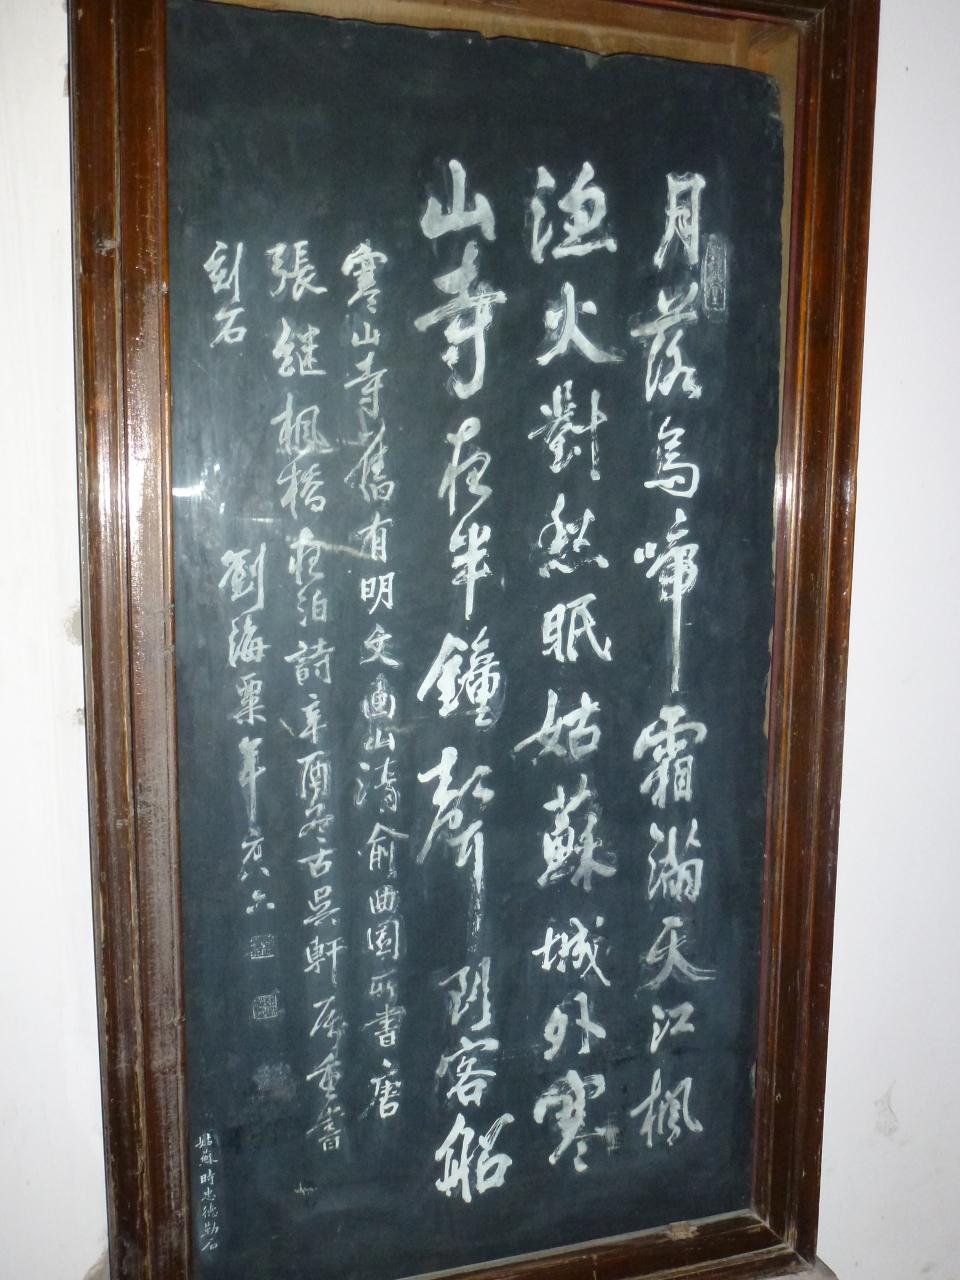 月落烏啼霜滿天江楓
漁火對愁眠姑蘇城外寒
山寺夜半鐘聲到客船
寒山寺舊有明文衡山清俞曲園所書唐
張继楓橋夜泊詩辛酉冬古吳軒屬重書
刻石 劉海粟年方八六
姑蘇時忠德勒石